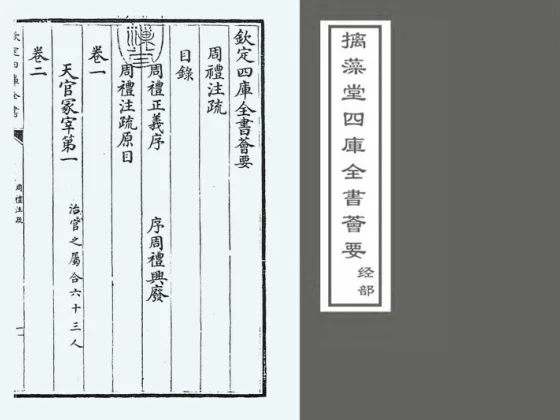 摛藻堂四庫全書薈要
经部
欽定四庫全書薈要
周禮注疏
目錄
周禮正義序 序周禮興廢
周禮注疏原目
卷一
天官冢宰第一 治官之屬合六十三人
卷二
欽定四庫全書
周禮注疏
一